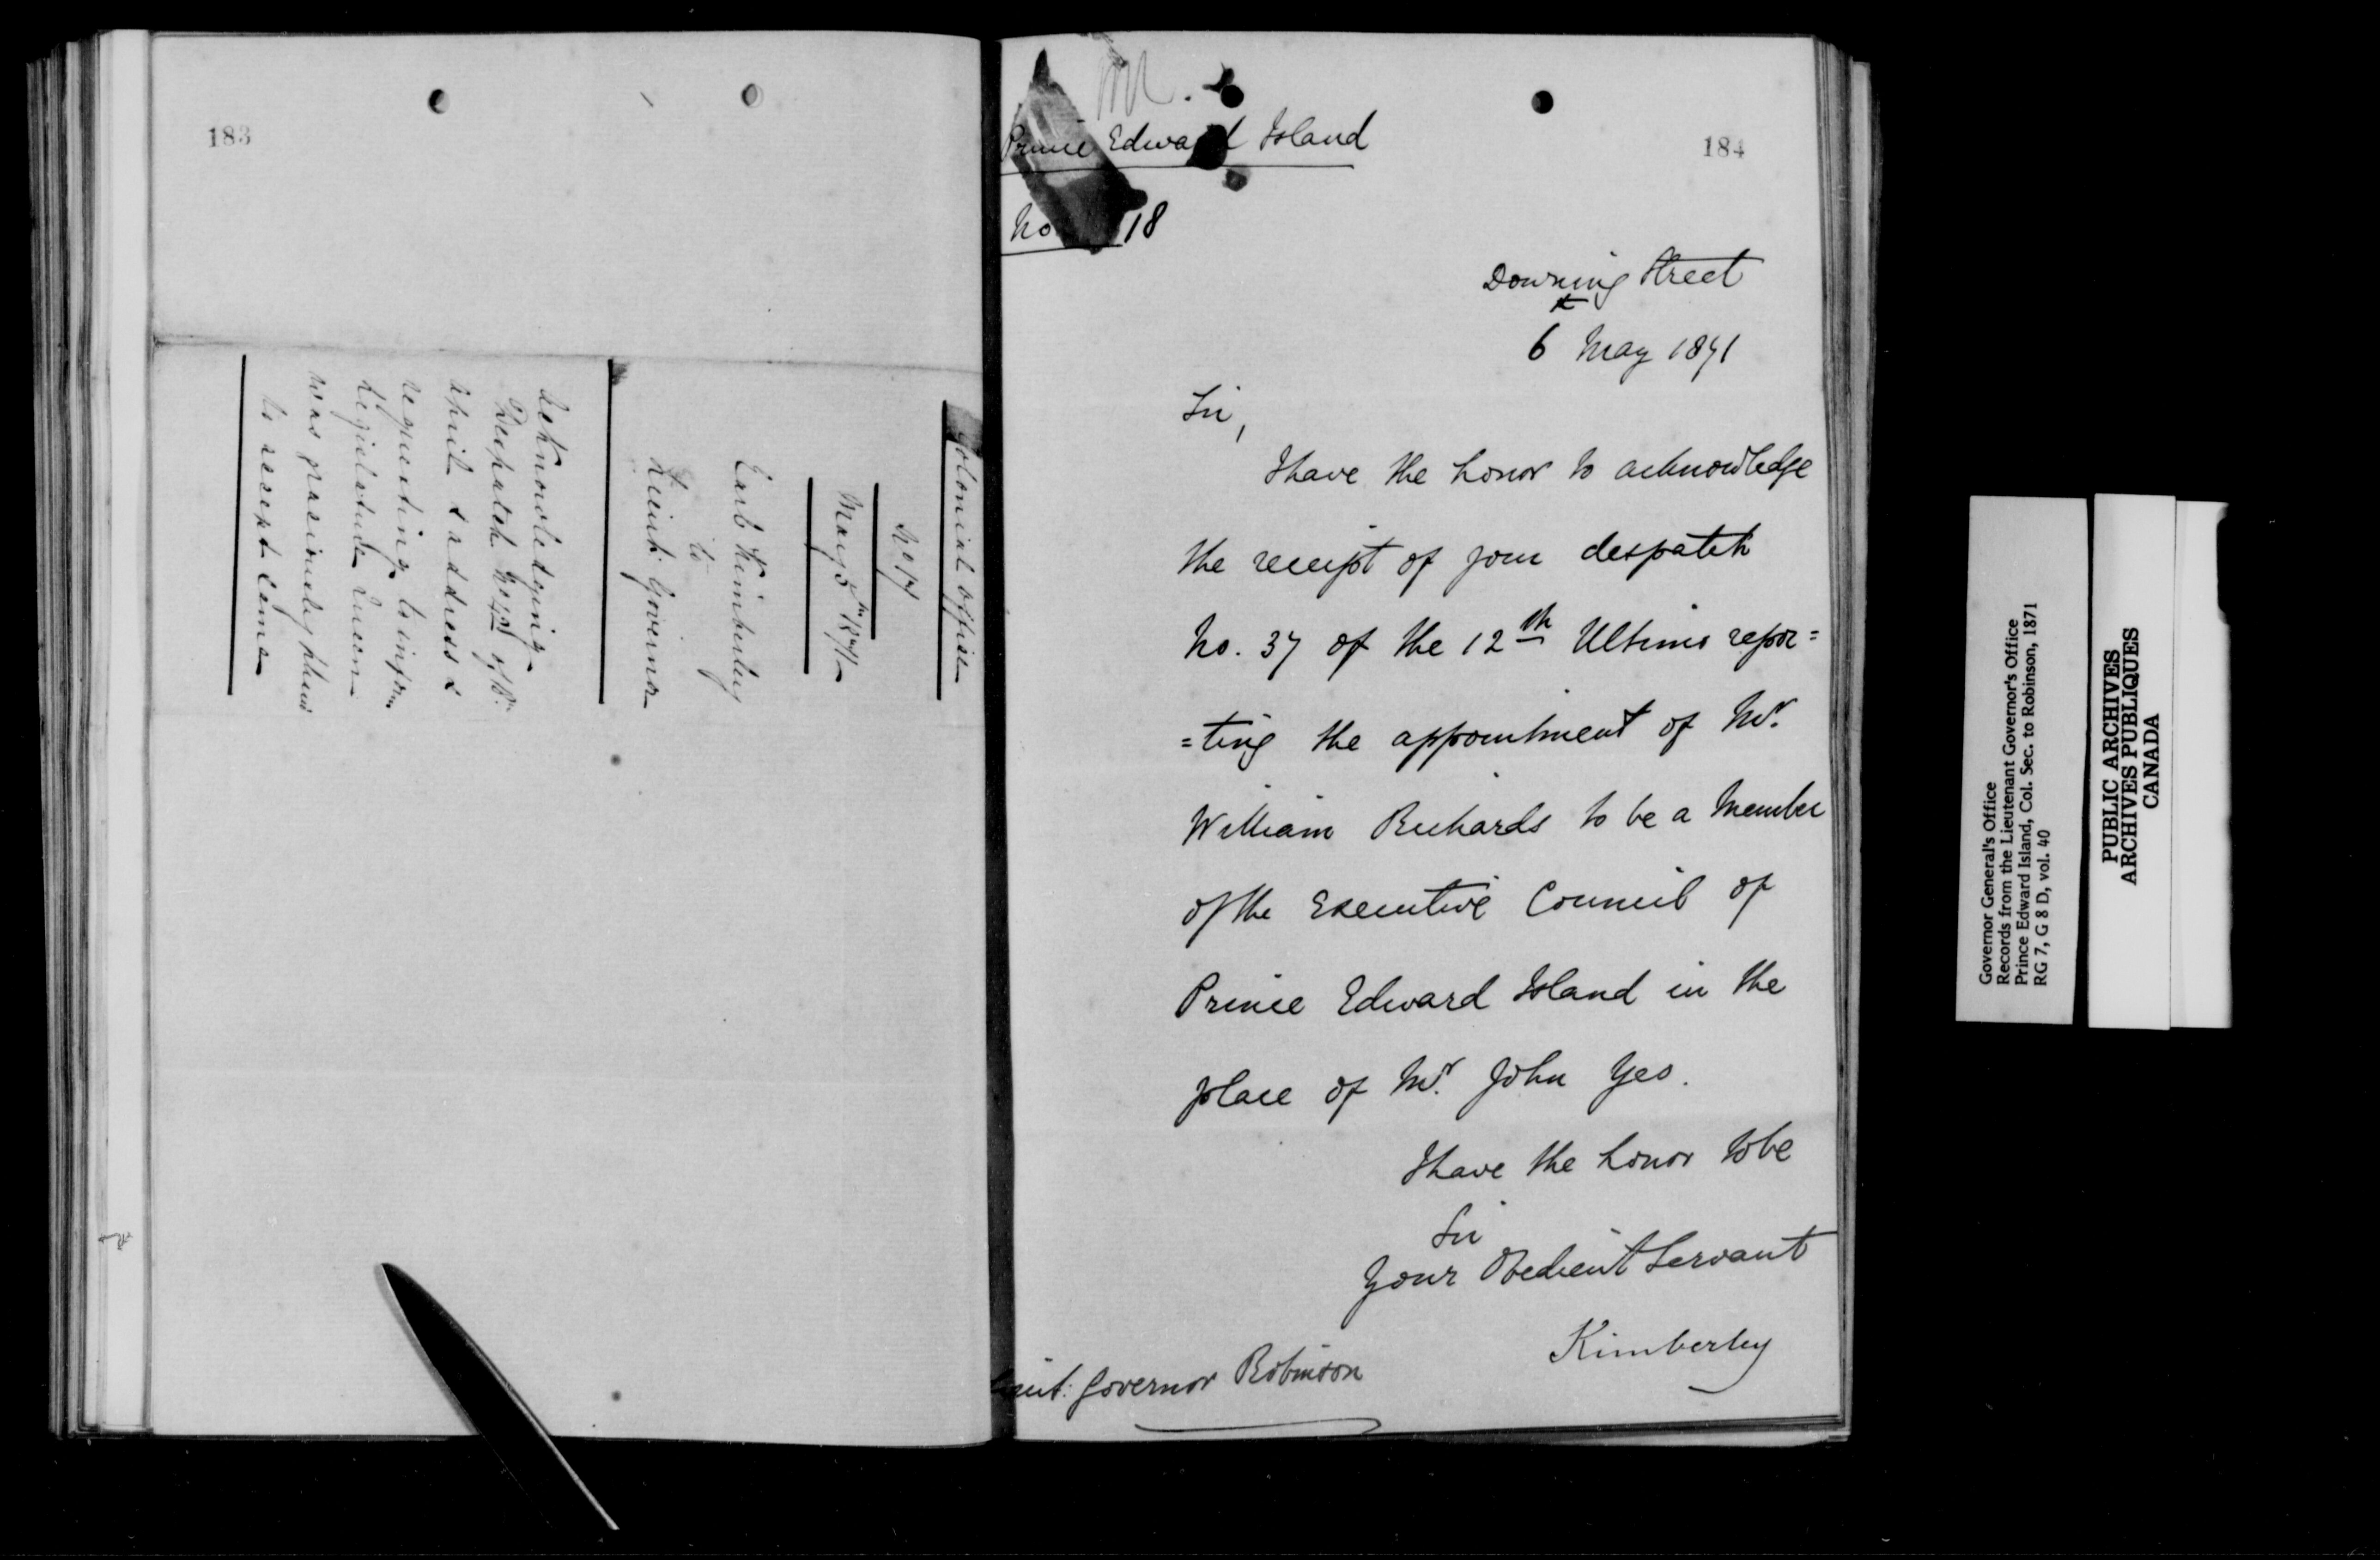 183
Colonial Office
No 17
May 5th 1871
Earl Kimberley
to
Lieut: Governor
Acknowledging
Despatch No 40 of 13th
April & address &
requesting to inform
Legislature Queen
was graciously pleased
to accept same
Prince Edward Island
No 18
184
Downing Street
6 May 1871
Sir,
I have the honor to acknowledge
the receipt of your despatch
No. 37 of the 12th Ultimo repor=
=ting the appointment of Mr.
William Richards to be a Member
of the Executive Council of
Prince Edward Island in the
place of Mr. John Yeo.
I have the honor to be
Sir
Your Obedient Servant
Kimberley
Lieut: Governor Robinson
Governor General's Office
Records from the Lieutenant Governor's Office
Prince Edward Island, Col. Sec. to Robinson, 1871
RG 7, G 8 D, vol. 40
PUBLIC ARCHIVES
ARCHIVES PUBLIQUES
CANADA